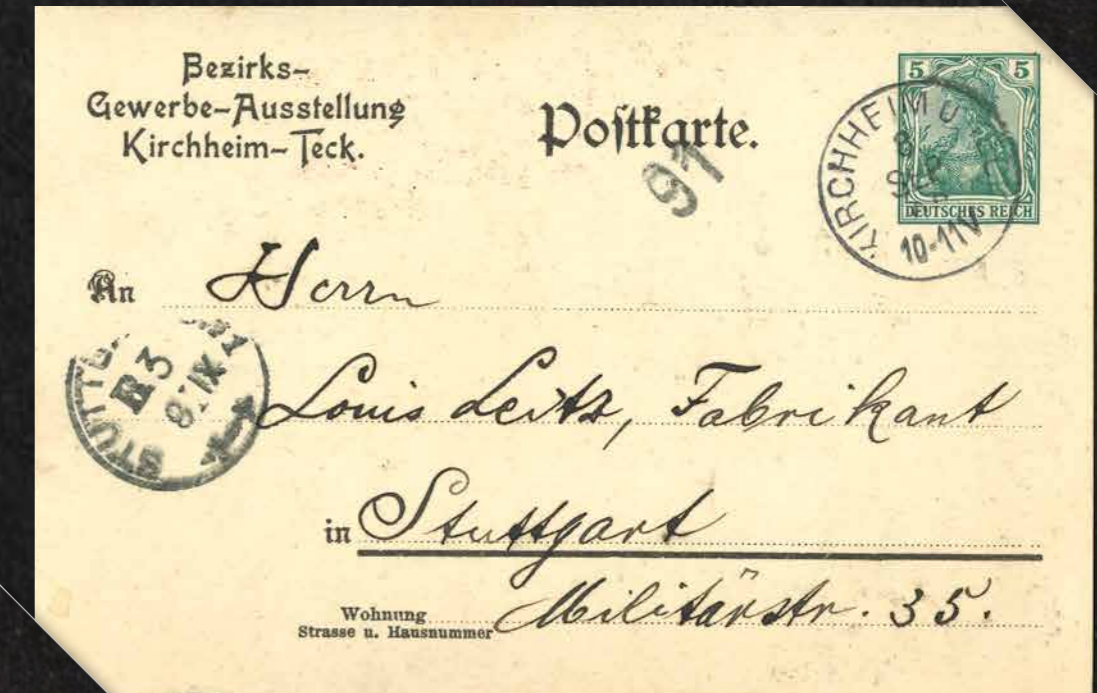 Bezirks-
Gewerbe-Ausstellung
Kirchheim-Teck.
Postkarte.
91
5 5
DEUTSCHES REICH
KIRCHHEIM U.
8
SEP
10-11V
An Herrn
STUTTG
3
8 IX
Louis Leitz, Fabrikant
in Stuttgart
Wohnung
Strasse u. Hausnummer
Militärstr. 35.